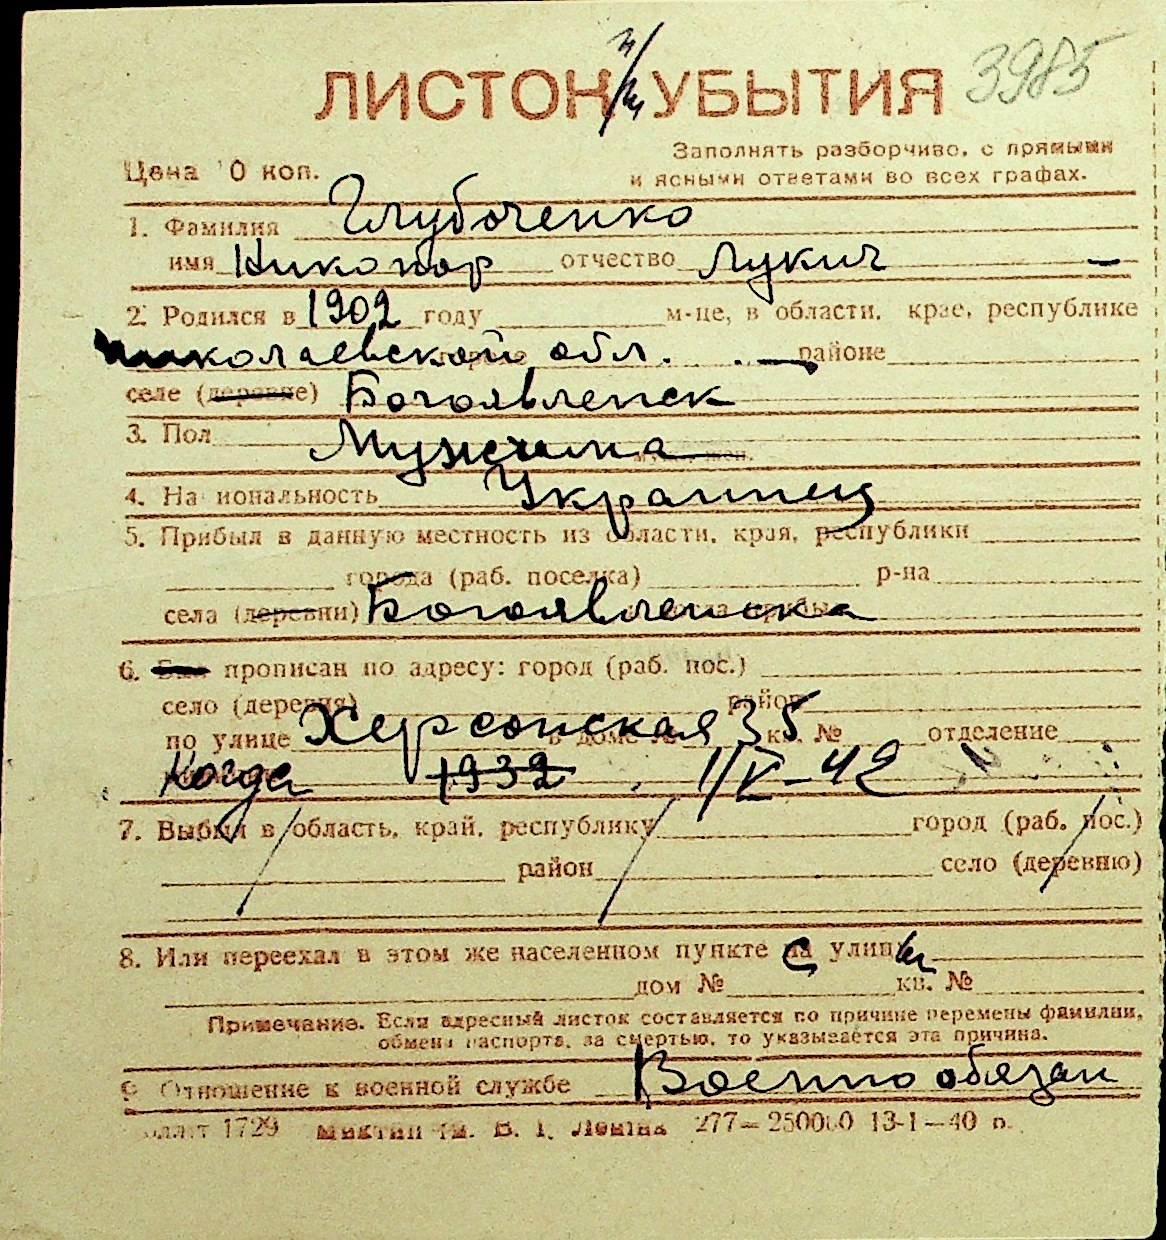 ЛИСТОК УБЫТИЯ 3985
Заполнять разборчиво, с прямыми
Цена 10 коп. и ясными ответами во всех графах.
1. Фамилия Глубоченко
имя Никонор отчество Лукич
2. Родился в 1902 году м-це, в области, крае, республике
Николаевской обл. районе
селе (деревне) Богоявленск
3. Пол Мужчина
4. Национальность Украинец
5. Прибыл в данную местность из области, края, республики
города (раб. поселка) р-на
села (деревни) Богоявленска
6. Был прописан по адресу: город (раб. пос.)
село (деревня) район
по улице Херсонская 35 в доме № кв. № отделение
Когда 1932 1/V-42
7. Выбыл в область, край, республику город (раб. пос.)
район село (деревню)
8. Или переехал в этом же населенном пункте с улицы
дом № кв. №
Примечание. Если адресный листок составляется по причине перемены фамилии,
обмена паспорта, за смертью, то указывается эта причина.
9 Отношение к военной службе Военнообязан
1729 им. В. І. Леніна 277—250000 13-1—40 р.